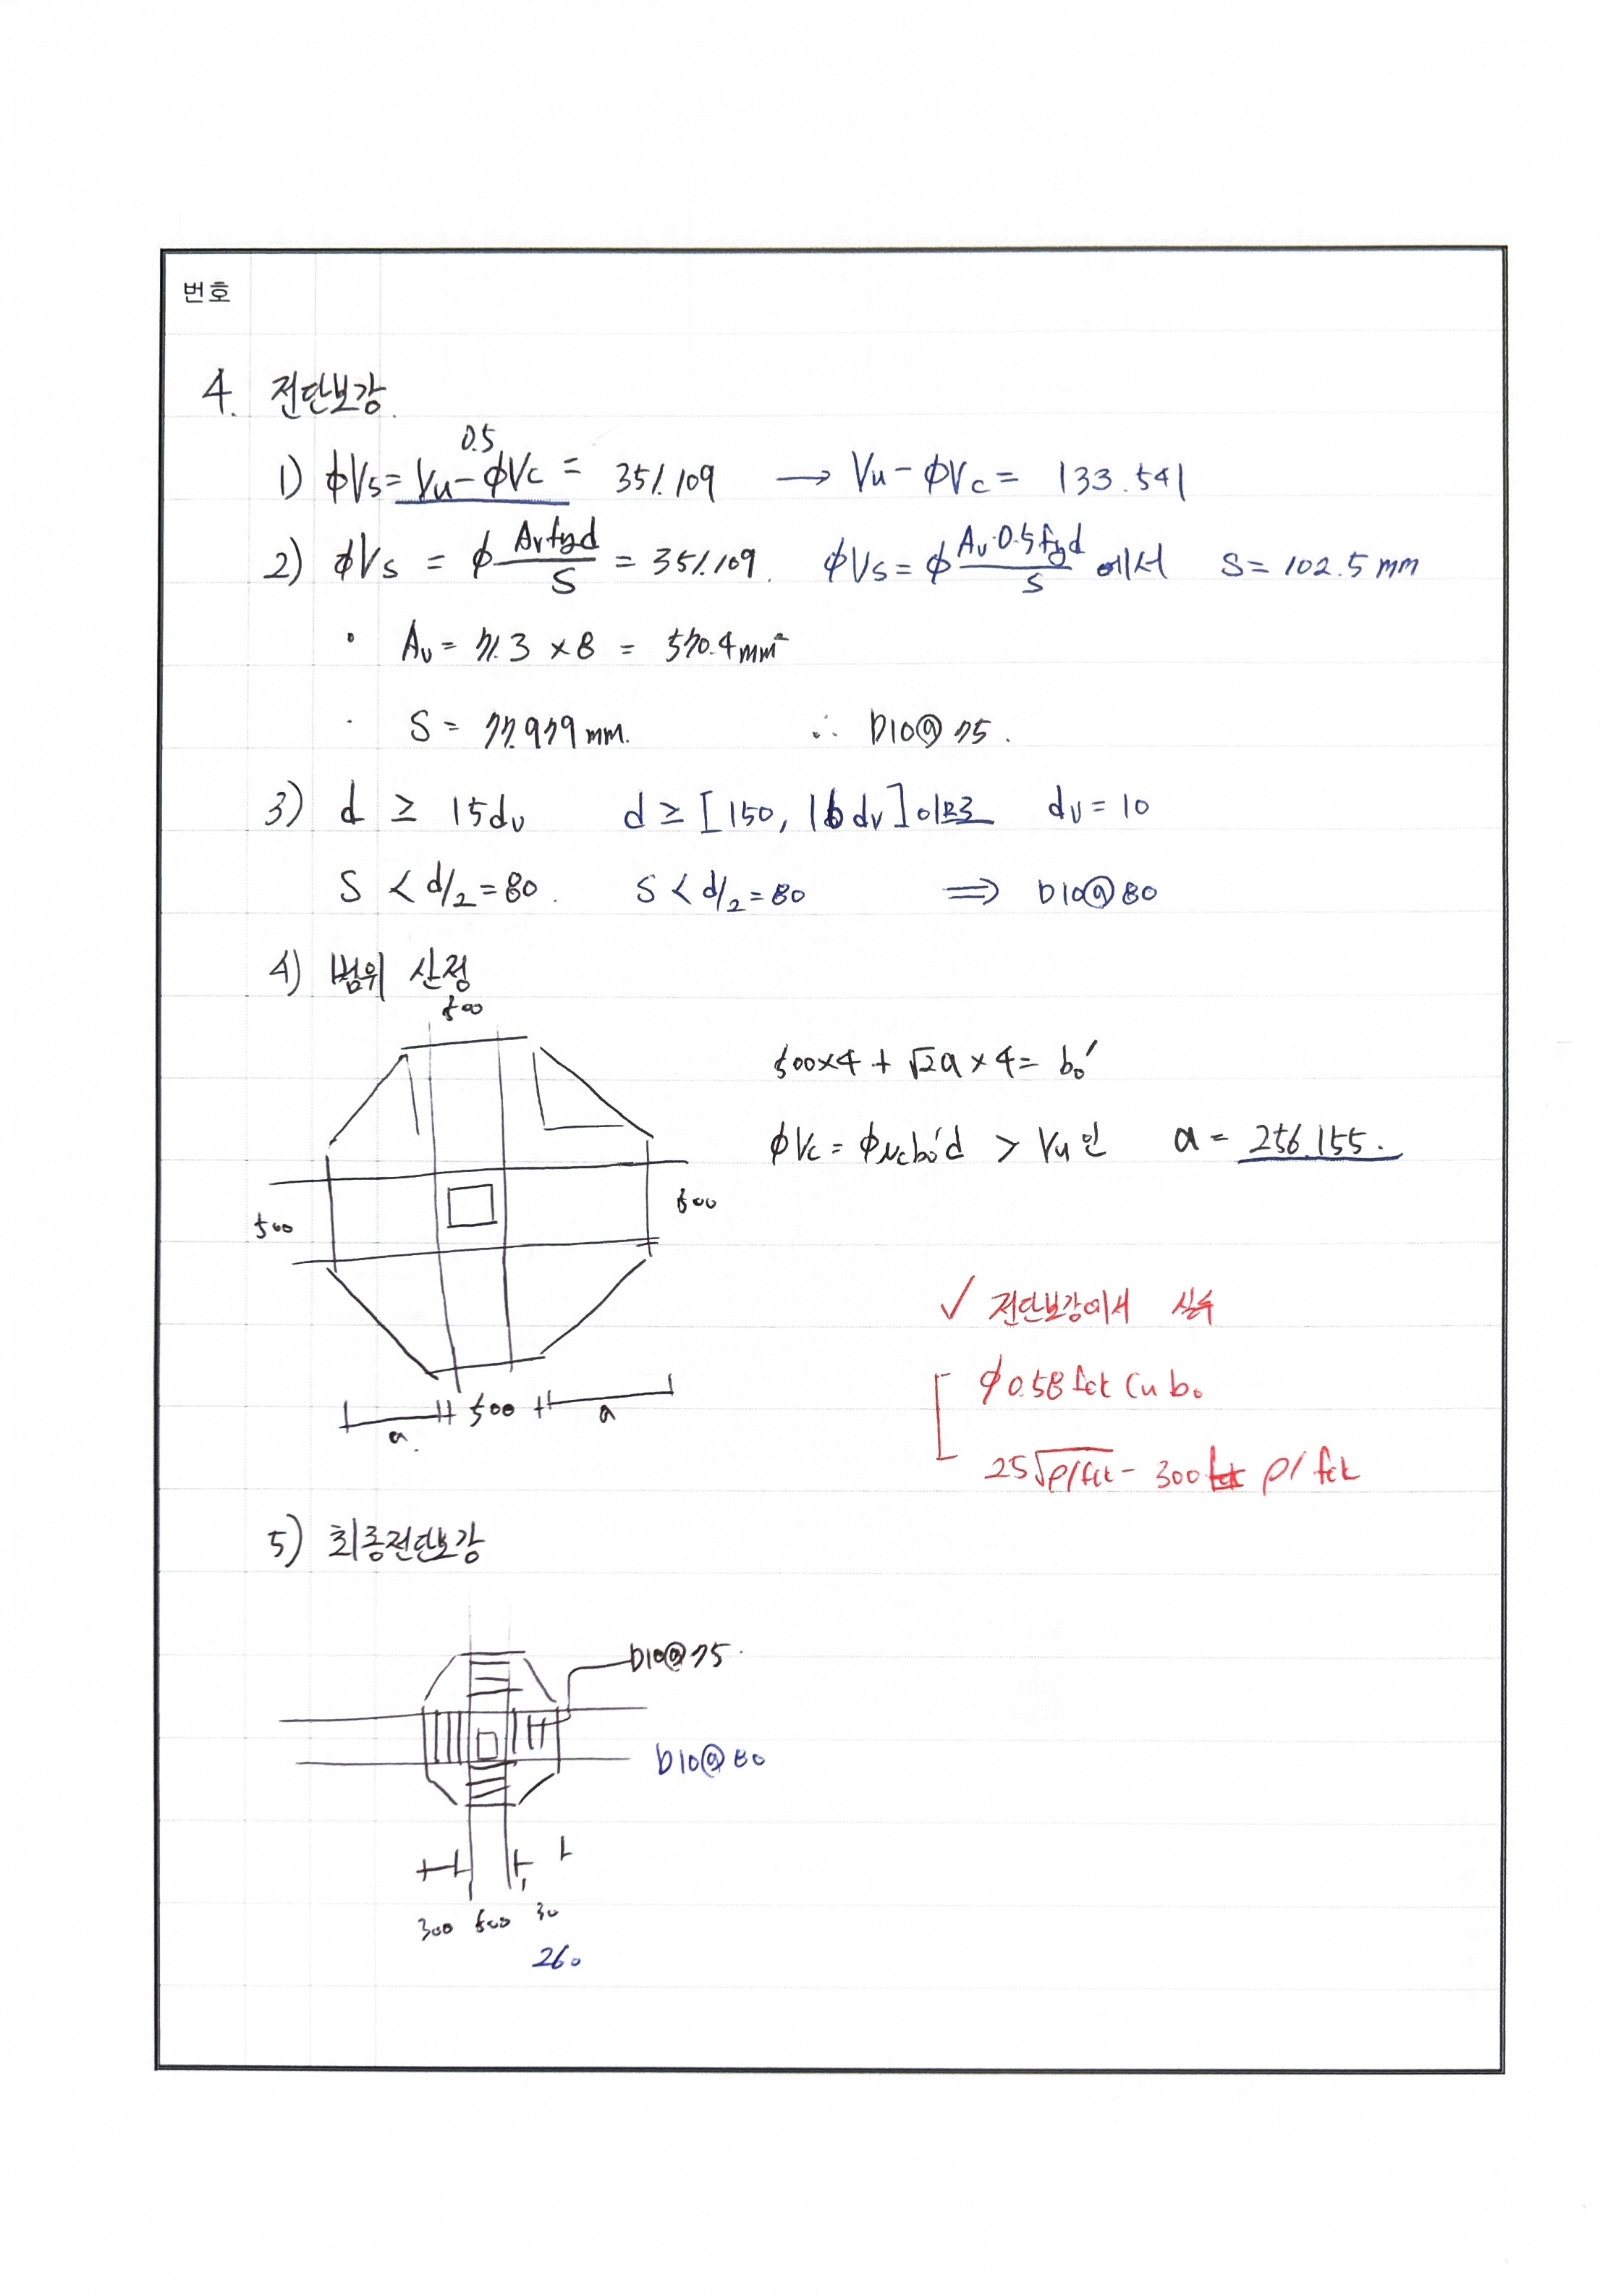 번호
4. 전단보강.
0.5
1) ϕVs = Vu - ϕVc = 351.109 → Vu - ϕVc = 133.541
2) ϕVs = ϕ Avfyd/S = 351.109. ϕVs = ϕ Av·0.5fyd/S 에서 S = 102.5 mm
· Av = 71.3 × 8 = 570.4 mm²
· S = 77.979 mm. ∴ D10@75.
3) d ≥ 15dv d ≥ [150, 16dv] 이므로 dv = 10
S < d/2 = 80. S < d/2 = 80 ⇒ D10@80
4) 범위 산정
500
500×4 + √2a × 4 = bo′
ϕVc = ϕνcbo′d > Vu인 a = 256.155.
500
500
a. 500 a
✓ 전단보강에서 실수
ϕ0.58 fck Cu bo
25√ρ/fck - 300 ρ/fck
5) 최종전단보강
D10@75.
D10@80
300 500 30
260